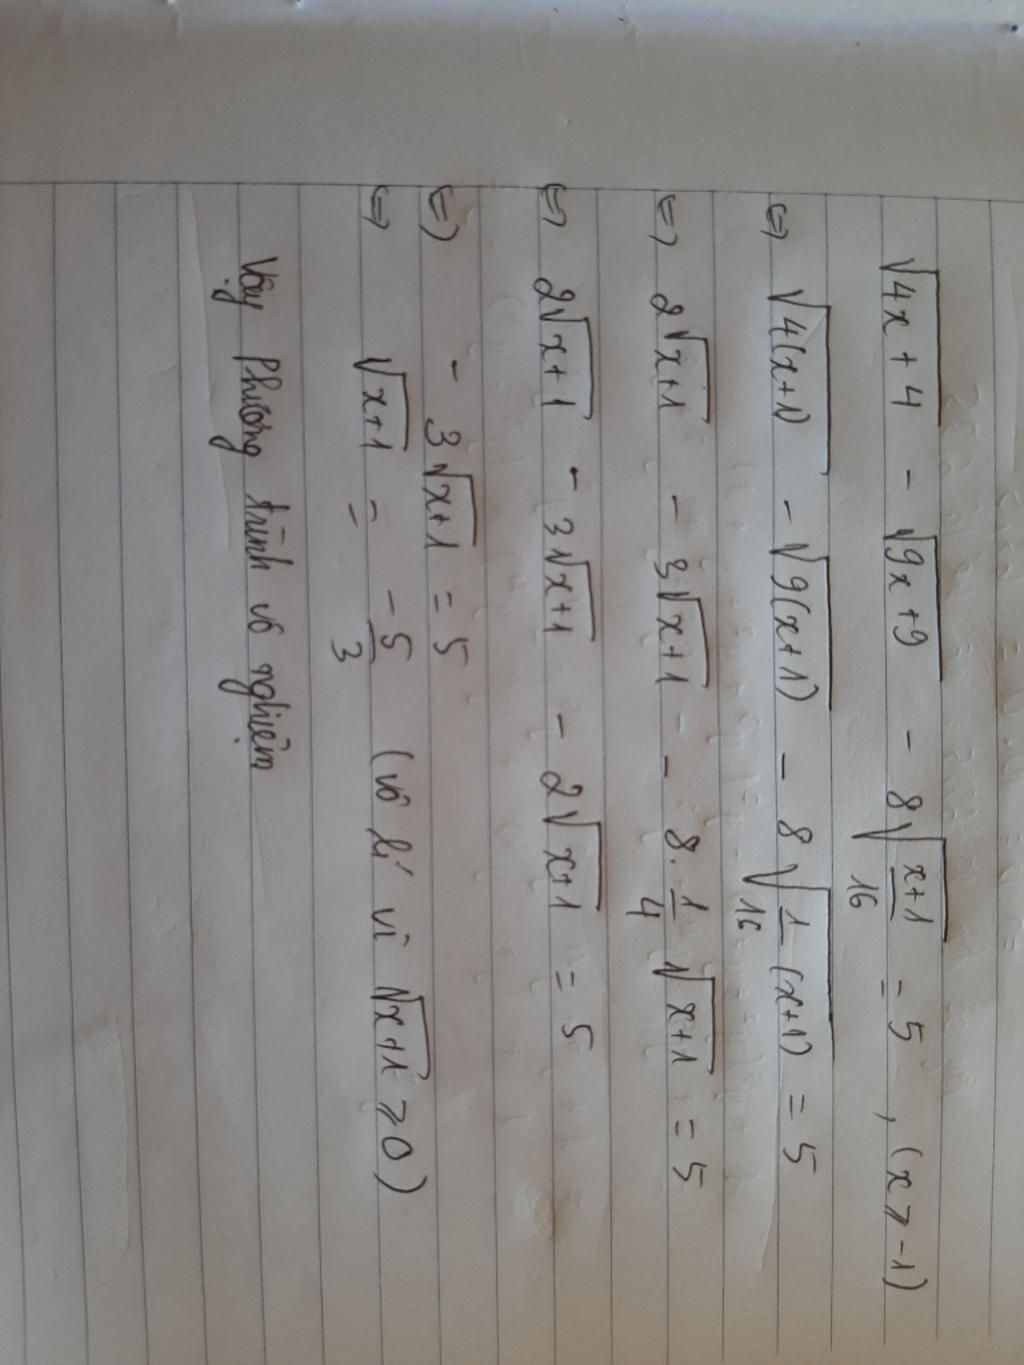 √(4x + 4) - √(9x + 9) - 8√((x+1)/16) = 5 , (x ⩾ -1)
⇔ √(4(x+1)) - √(9(x+1)) - 8√(1/16 (x+1)) = 5
⇔ 2√(x+1) - 3√(x+1) - 8. 1/4 √(x+1) = 5
⇔ 2√(x+1) - 3√(x+1) - 2√(x+1) = 5
⇔ - 3√(x+1) = 5
⇔ √(x+1) = -5/3 (vô lí vì √(x+1) ⩾ 0)
Vậy phương trình vô nghiệm